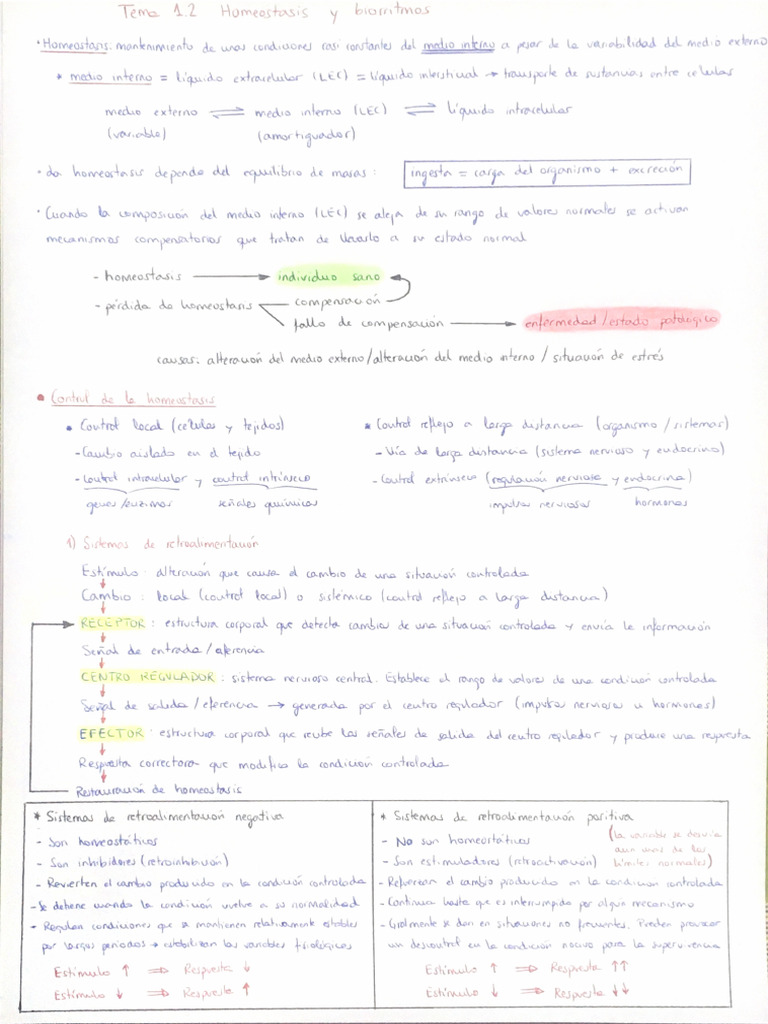 Tema 1.2 Homeostasis y biorritmos
• Homeostasis: mantenimiento de unas condiciones casi constantes del medio interno a pesar de la variabilidad del medio externo
* medio interno = líquido extracelular (LEC) = líquido intersticial → transporte de sustancias entre células
medio externo ⇌ medio interno (LEC) ⇌ líquido intracelular
(variable) (amortiguador)
• La homeostasis depende del equilibrio de masas: ingesta = carga del organismo + excreción
• Cuando la composición del medio interno (LEC) se aleja de su rango de valores normales se activan
mecanismos compensatorios que tratan de llevarlo a su estado normal
- homeostasis → individuo sano
- pérdida de homeostasis compensación
fallo de compensación → enfermedad/estado patológico
causas: alteración del medio externo/alteración del medio interno / situación de estrés
• Control de la homeostasis
• Control local (células y tejidos)
- Cambio aislado en el tejido
- Control intracelular y control intrínseco
genes/enzimas señales químicas
* Control reflejo a larga distancia (organismo / sistemas)
- Vía de larga distancia (sistema nervioso y endocrino)
- Control extrínseco (regulación nerviosa y endocrina)
impulsos nerviosos hormonas
1) Sistemas de retroalimentación
Estímulo: alteración que causa el cambio de una situación controlada
↓
Cambio: local (control local) o sistémico (control reflejo a larga distancia)
↓
RECEPTOR: estructura corporal que detecta cambios de una situación controlada y envía la información
↓
Señal de entrada / aferencia
↓
CENTRO REGULADOR: sistema nervioso central. Establece el rango de valores de una condición controlada
↓
Señal de salida / eferencia → generada por el centro regulador (impulsos nerviosos u hormonas)
↓
EFECTOR: estructura corporal que recibe las señales de salida del centro regulador y produce una respuesta
↓
Respuesta correctora que modifica la condición controlada
↓
Restauración de homeostasis
* Sistemas de retroalimentación negativa
- Son homeostáticos
- Son inhibidores (retroinhibición)
- Revierten el cambio producido en la condición controlada
- Se detiene cuando la condición vuelve a su normalidad
- Regulan condiciones que se mantienen relativamente estables
por largos periodos → estabilizan las variables fisiológicas
Estímulo ↑ ⇒ Respuesta ↓
Estímulo ↓ ⇒ Respuesta ↑
* Sistemas de retroalimentación positiva
- No son homeostáticos (la variable se desvía
aun más de los
límites normales)
- Son estimuladores (retroactivación)
- Refuerzan el cambio producido en la condición controlada
- Continua hasta que es interrumpido por algún mecanismo
- Gralmente se dan en situaciones no frecuentes. Pueden provocar
un descontrol en la condición nocivo para la supervivencia
Estímulo ↑ ⇒ Respuesta ↑↑
Estímulo ↓ ⇒ Respuesta ↓↓